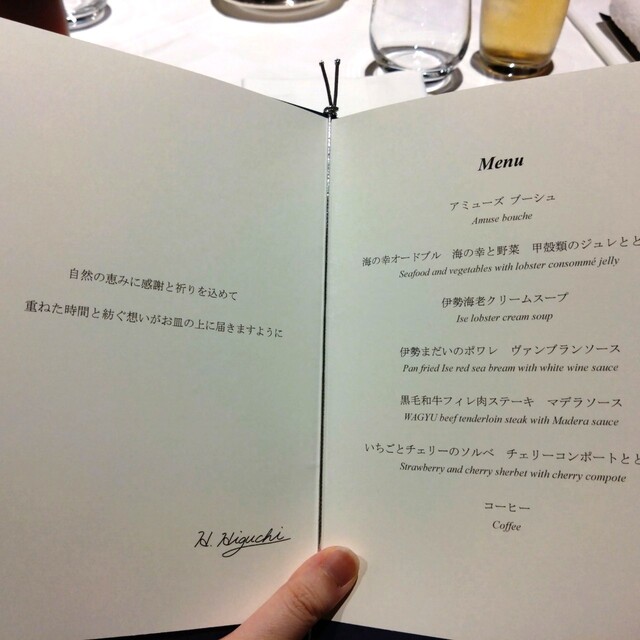 自然の恵みに感謝と祈りを込めて
重ねた時間と紡ぐ想いがお皿の上に届きますように
H. Higuchi
Menu
アミューズ ブーシュ
Amuse bouche
海の幸オードブル 海の幸と野菜 甲殻類のジュレとと
Seafood and vegetables with lobster consommé jelly
伊勢海老クリームスープ
Ise lobster cream soup
伊勢まだいのポワレ ヴァンブランソース
Pan fried Ise red sea bream with white wine sauce
黒毛和牛フィレ肉ステーキ マデラソース
WAGYU beef tenderloin steak with Madera sauce
いちごとチェリーのソルベ チェリーコンポートとと
Strawberry and cherry sherbet with cherry compote
コーヒー
Coffee